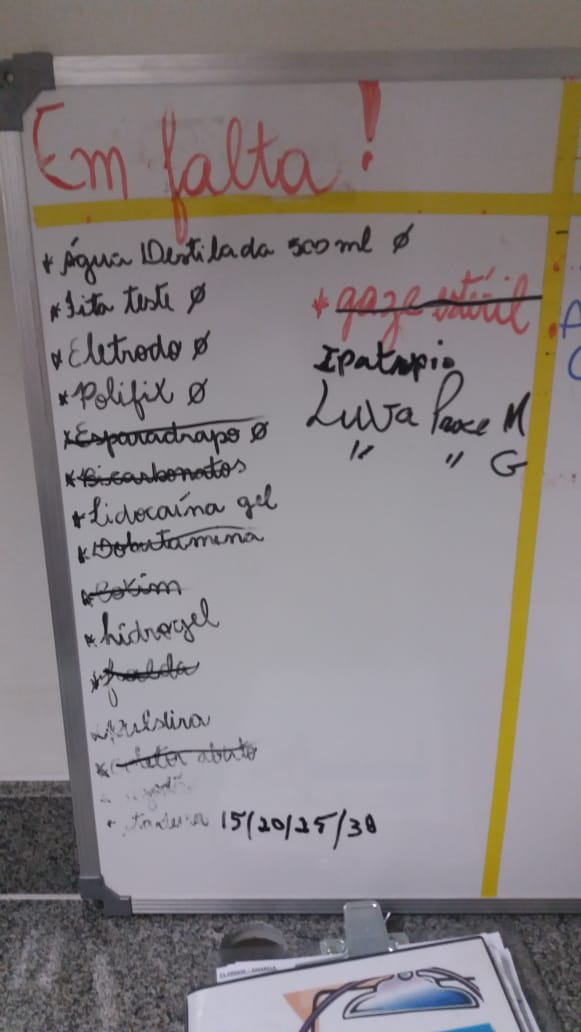 Em falta!
* Água Destilada 500 ml ∅
* Fita teste ∅
* Eletrodo ∅
* Polifix ∅
* Esparadrapo ∅
* Bicarbonatos
* Lidocaína gel
* Dobutamina
*
* hidrogel
* fralda
* pulseira
* aberto
* 15/20/25/30
* gaze estéril
Luva Proce M
" " G